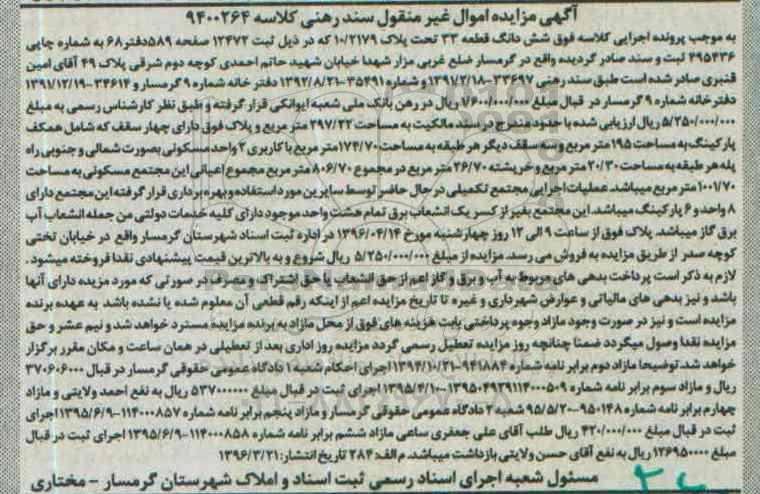 آگهی مزایده اموال غیر منقول سند رهنی کلاسه ۹۴۰۰۲۶۴
به موجب پرونده اجرایی کلاسه فوق شش دانگ قطعه ۳۳ تحت پلاک ۱۰/۲۱۷۹ که در ذیل ثبت ۱۲۴۷۲ صفحه ۵۸۹ دفتر ۶۸ به شماره چاپی
۴۹۵۴۳۶ ثبت و سند صادر گردیده واقع در گرمسار ضلع غربی مزار شهدا خیابان شهید حاتم احمدی کوچه دوم شرقی پلاک ۴۹ آقای امین
قنبری صادر شده است طبق سند رهنی ۳۳۶۹۷-۱۳۹۱/۲/۱۸ و شماره ۳۵۴۹۱-۱۳۹۲/۸/۲۱ دفتر خانه شماره ۹ گرمسار و ۳۴۶۱۴-۱۳۹۱/۱۲/۱۹
دفتر خانه شماره ۹ گرمسار در قبال مبلغ ۱/۶۰۰/۰۰۰/۰۰۰ ریال در رهن بانک ملی شعبه ایوانکی قرار گرفته و طبق نظر کارشناس رسمی به مبلغ
۵/۲۵۰/۰۰۰/۰۰۰ ریال ارزیابی شده با حدود مندرج در سند مالکیت به مساحت ۲۹۷/۲۲ متر مربع و پلاک فوق دارای چهار سقف که شامل همکف
پارکینگ به مساحت ۱۹۵ متر مربع و سه سقف دیگر هر طبقه به مساحت ۱۷۴/۷۰ متر مربع با کاربری ۲ واحد مسکونی بصورت شمالی و جنوبی راه
پله هر طبقه به مساحت ۲۰/۳۰ متر مربع و خرپشته ۲۶/۷۰ متر مربع در مجموع ۸۰۶/۷۰ متر مربع مجموع اعیانی این مجتمع مسکونی به مساحت
۱۰۰۱/۷۰ متر مربع میباشد. عملیات اجرایی مجتمع تکمیلی در حال حاضر توسط سایرین مورد استفاده و بهره برداری قرار گرفته این مجتمع دارای
۸ واحد و ۶ پارکینگ میباشد. این مجتمع بغیر از کسر یک انشعاب برق تمام هشت واحد موجود دارای کلیه خدمات دولتی من جمله انشعاب آب
برق گاز میباشد. پلاک فوق از ساعت ۹ الی ۱۲ روز چهارشنبه مورخ ۱۳۹۶/۰۴/۱۴ در اداره ثبت اسناد شهرستان گرمسار واقع در خیابان تختی
کوچه صدر از طریق مزایده به فروش می رسد. مزایده از مبلغ ۵/۲۵۰/۰۰۰/۰۰۰ ریال شروع و به بالاترین قیمت پیشنهادی نقدا فروخته میشود.
لازم به ذکر است پرداخت بدهی های مربوط به آب و برق و گاز اعم از حق انشعاب یا حق اشتراک و مصرف در صورتی که مورد مزیده دارای آنها
باشد و نیز بدهی های مالیاتی و عوارض شهرداری و غیره تا تاریخ مزایده اعم از اینکه رقم قطعی آن معلوم شده یا نشده باشد به عهده برنده
مزایده است و نیز در صورت وجود مازاد وجوه پرداختی بابت هزینه های فوق از محل مازاد به برنده مزایده مسترد خواهد شد و نیم عشر و حق
مزایده نقدا وصول میگردد ضمنا چنانچه روز مزایده تعطیل رسمی گردد مزایده روز اداری بعد از تعطیلی در همان ساعت و مکان مقرر برگزار
خواهد شد. توضیحا مازاد دوم برابر نامه شماره ۹۴۱۸۸۴-۱۳۹۴/۱۰/۲۱ اجرای احکام شعبه ۱ دادگاه عمومی حقوقی گرمسار در قبال ۳۷۰۶۰۶۰۰۰
ریال و مازاد سوم برابر نامه شماره ۱۳۹۵۰۴۹۲۹۱۱۴۰۰۰۵۰۹-۱۳۹۵/۴/۱۰ اجرای ثبت در قبال مبلغ ۵۳۷۰۰۰۰۰۰ ریال به نفع احمد ولایتی و مازاد
چهارم برابر نامه شماره ۹۵۰۱۴۸-۹۵/۵/۲۰ شعبه ۲ دادگاه عمومی حقوقی گرمسار و مازاد پنجم برابر نامه شماره ۱۱۴۰۰۰۸۵۷-۱۳۹۵/۶/۹ اجرای
ثبت در قبال مبلغ ۴۲۰/۰۰۰/۰۰۰ ریال طلب آقای علی جعفری ساعی مازاد ششم برابر نامه شماره ۱۱۴۰۰۰۸۵۸-۱۳۹۵/۶/۹ اجرای ثبت در قبال
مبلغ ۱۲۶۹۵۰۰۰۰ ریال به نفع آقای حسن ولایتی بازداشت میباشد. م الف: ۲۸۴ تاریخ انتشار: ۱۳۹۶/۳/۲۱
مسئول شعبه اجرای اسناد رسمی ثبت اسناد و املاک شهرستان گرمسار - مختاری